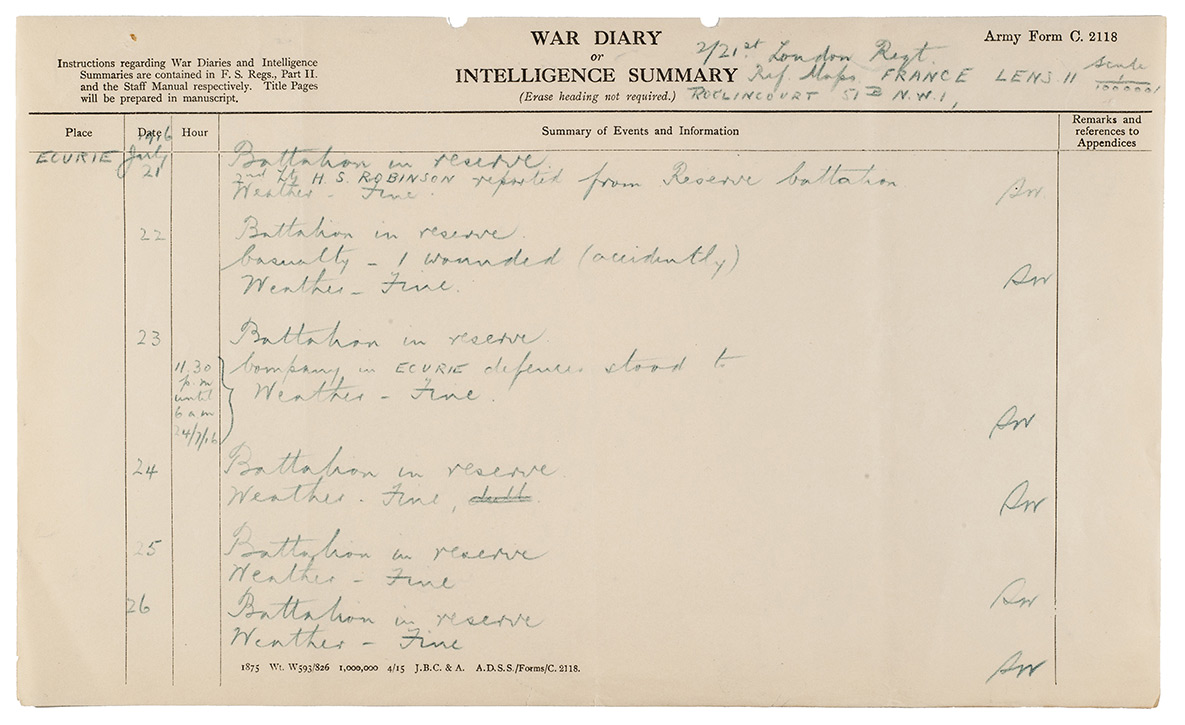 Army Form C. 2118
WAR DIARY
or
INTELLIGENCE SUMMARY
(Erase heading not required.)
Instructions regarding War Diaries and Intelligence
Summaries are contained in F. S. Regs., Part II.
and the Staff Manual respectively. Title Pages
will be prepared in manuscript.
2/21st London Regt.
Ref. Maps FRANCE LENS 11 Scale 1/100000
ROCLINCOURT 51B N.W.1,
Place
Date
Hour
Summary of Events and Information
Remarks and
references to
Appendices
ECURIE
1916
July
21
Battalion in reserve.
2nd Lt H. S. ROBINSON reported from Reserve battalion
Weather - Fine.
22
Battalion in reserve.
Casualty - 1 wounded (accidently)
Weather - Fine.
23
Battalion in reserve.
11.30
p.m
until
6 am
24/7/16
Company in ECURIE defences stood to
Weather - Fine.
24
Battalion in reserve.
Weather - Fine, dull
25
Battalion in reserve
Weather - Fine
26
Battalion in reserve
Weather - Fine
1875 Wt. W593/826 1,000,000 4/15 J.B.C. & A. A.D.S.S./Forms/C. 2118.